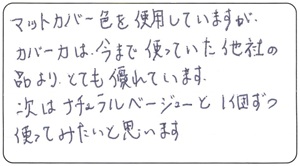 マットカバー色を使用していますが、
カバー力は、今まで使っていた他社の
品より、とても優れています。
次はナチュラルベージューと1個ずつ
使ってみたいと思います